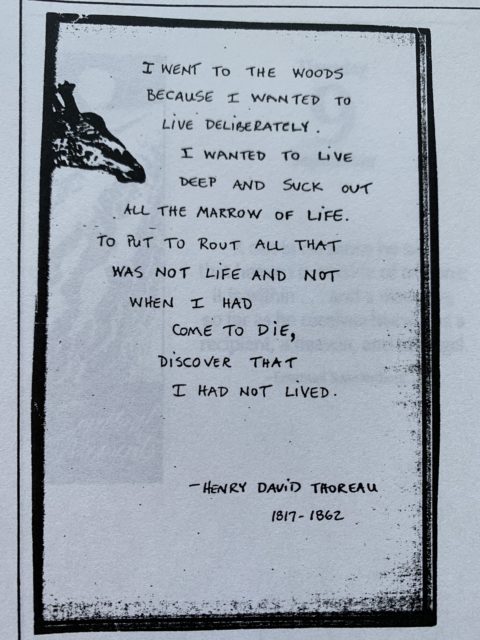 I WENT TO THE WOODS
BECAUSE I WANTED TO
LIVE DELIBERATELY.
I WANTED TO LIVE
DEEP AND SUCK OUT
ALL THE MARROW OF LIFE.
TO PUT TO ROUT ALL THAT
WAS NOT LIFE AND NOT
WHEN I HAD
COME TO DIE,
DISCOVER THAT
I HAD NOT LIVED.
-HENRY DAVID THOREAU
1817-1862